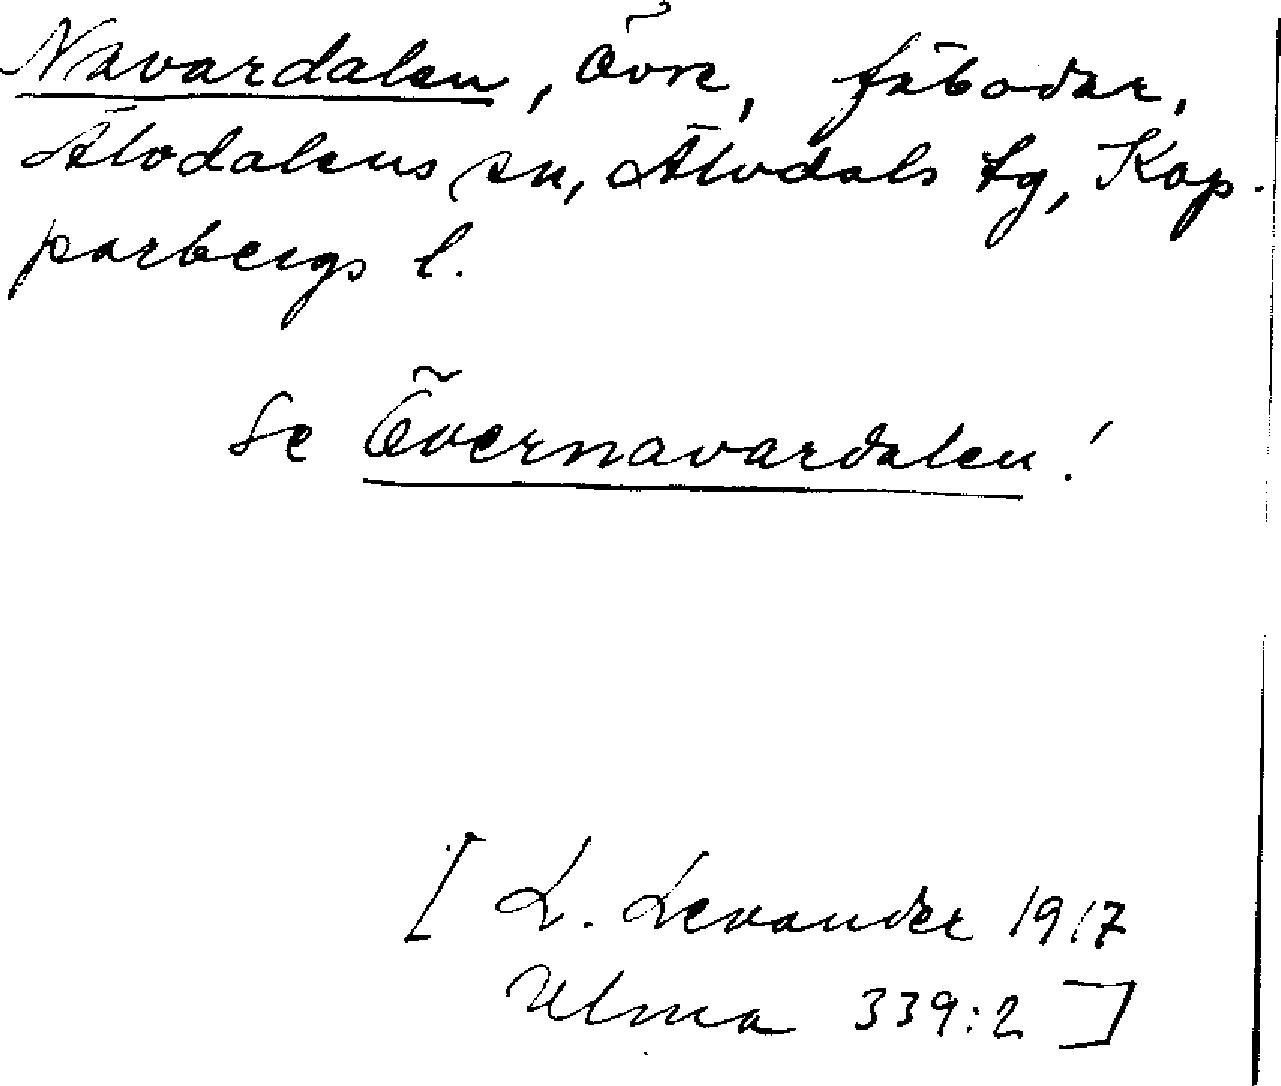 Navardalen, Övre, fäbodar,
Älvdalens sn, Älvdals tg, Kop-
parbergs l.
Se Övernavardalen!
[L. Levander 1917
Ulma 339:2]